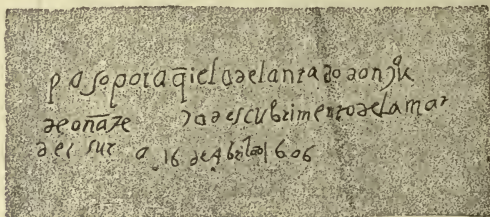 pasopora q̄ieladelantado donju
deoñate dadescubrimentodelamar
del sur a 16 de Abril de 1606